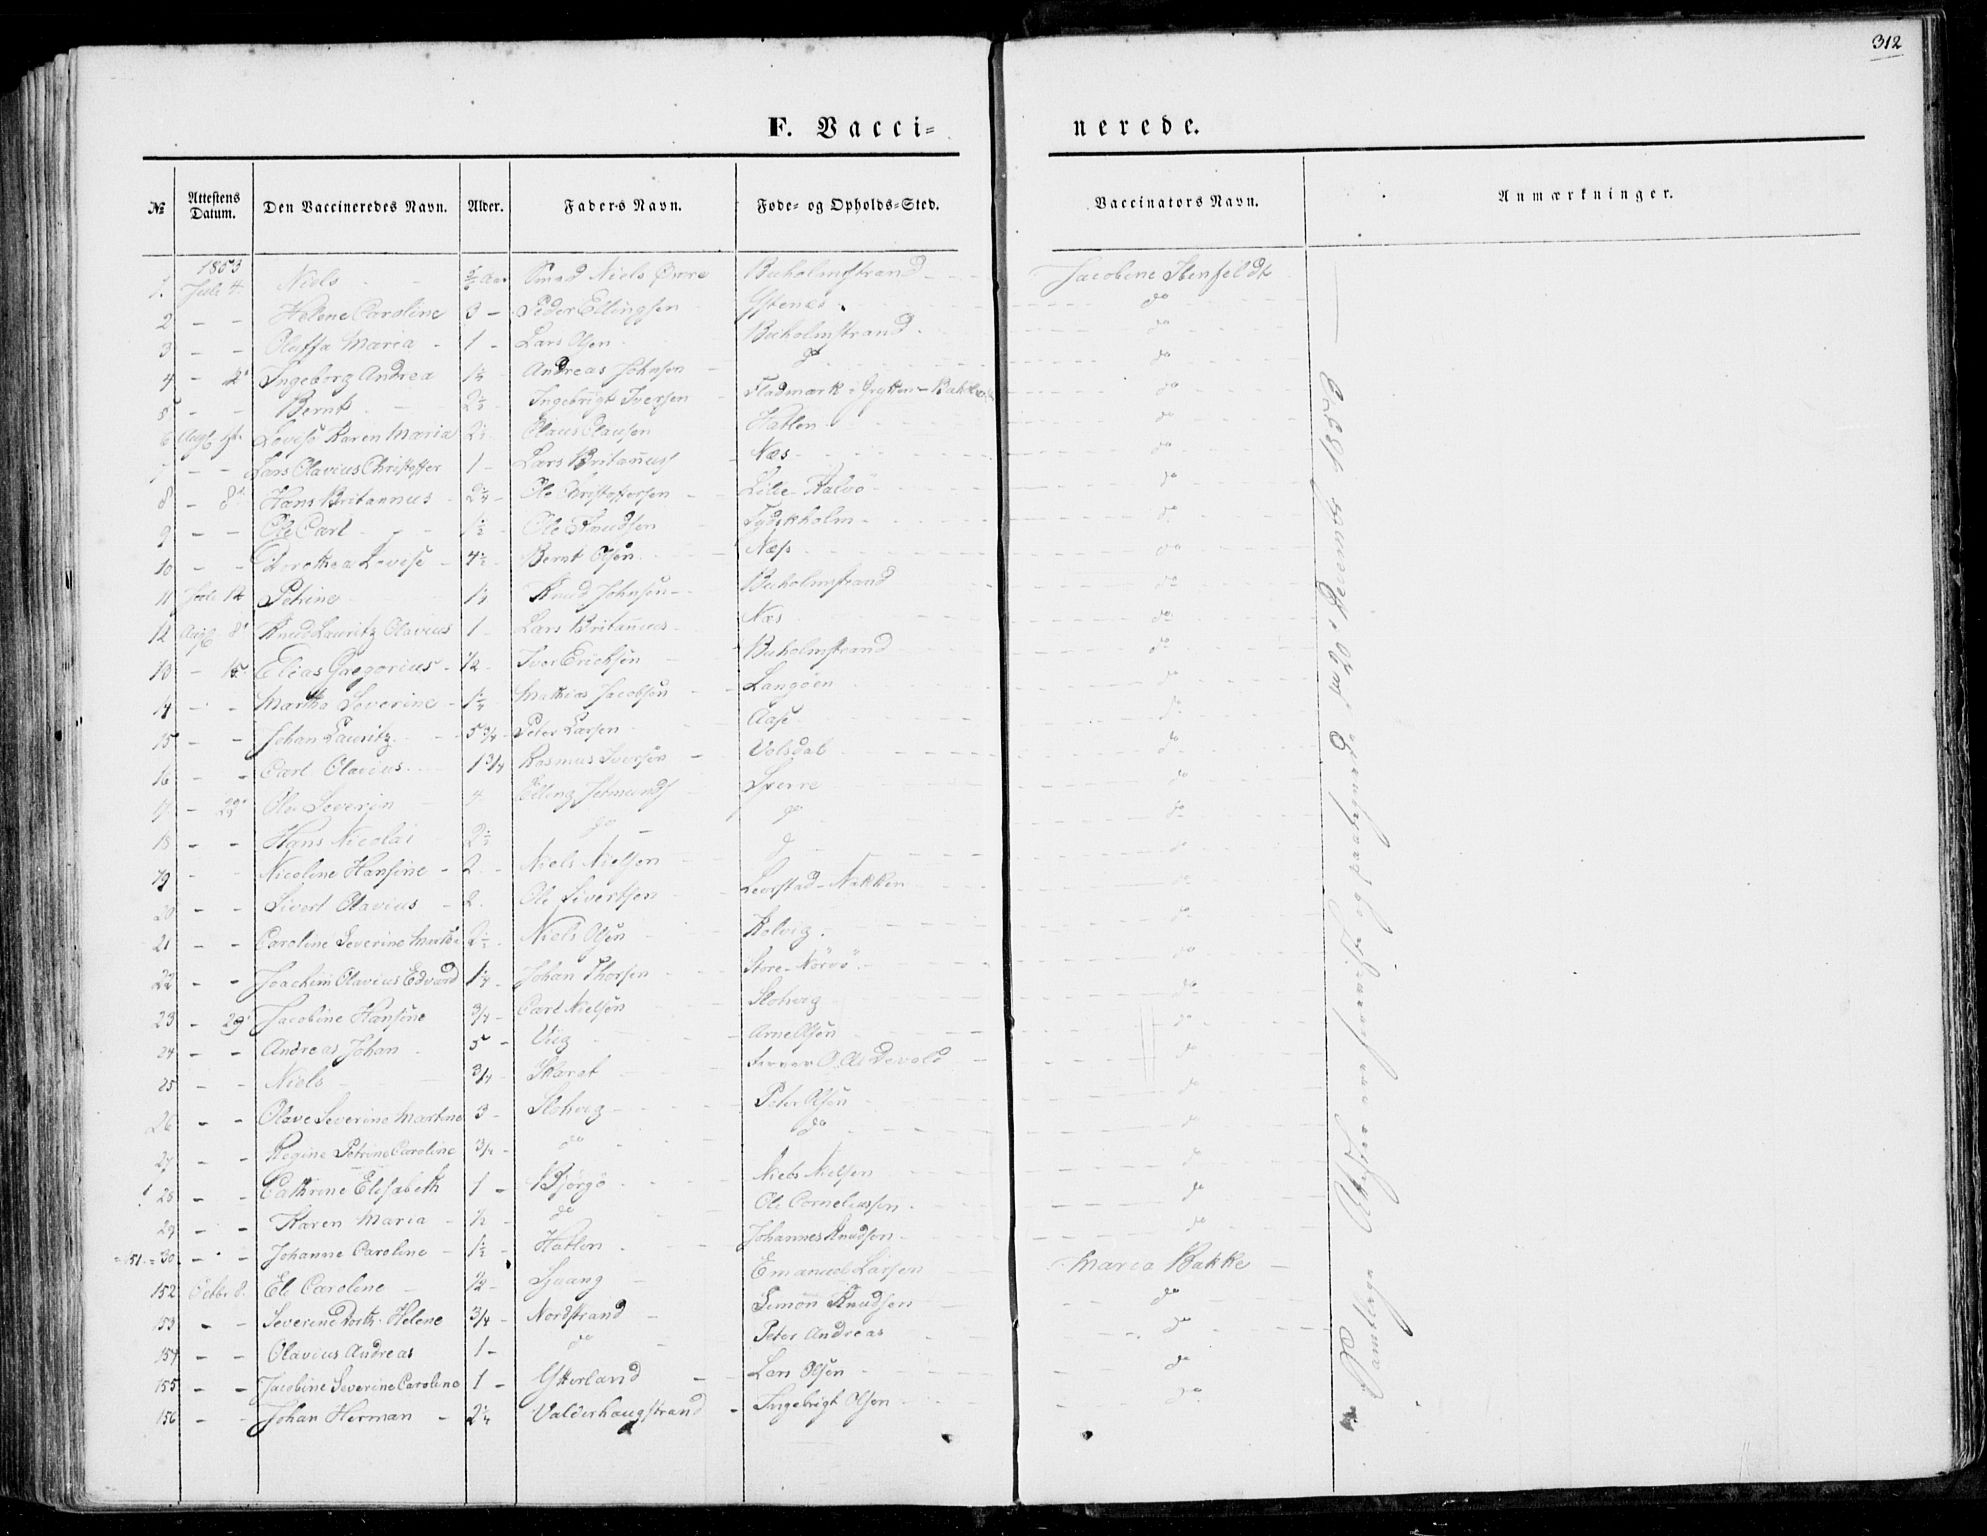 312
F. Vacci= nerede.
№ Attestens Datum. Den Vaccineredes Navn. Alder. Faders Navn. Føde- og Opholds-Sted. Vaccinators Navn. Anmærkninger.
1853
1. Juli 4. Niels Smed Niels Buholmstrand Jacobine
2 - - Helene Caroline 3 - Peder Ellingsen do
3 - - Oluffa Maria - 1 - Lars Olsen Buholmstrand do
4 - Ingeborg Andrea 1¼ Andreas Johnsen do do
5 - - Bernt Ingebrigt Iversen Fladmark - Grytten - do
6 Lovise Karen Maria Claus Clausen Hatlen do
7 - - Lars Olavius Christoffer 1 - Lars Britanus Næs do
8 - 8 Hans Britannus - 2¼ - Ole Christoffersen Lille Kalvö do
9 - - Ole Carl 1½ - Ole Knudsen Tydskholm do
10 - - Dorothea Lovise - 4½ - Bernt Olsen Næss do
11 Juli 12 Petrine 1¼ Knud Johnsen Buholmstrand do
12 8 Knud Lauritz Olavius 1 - Lars Britanus Næs do
13 - 15 Elias Gregorius - ½ - Iver Ericksen Buholmstrand do
14 - - Martha Severine - Mathias Jacobsen Langöen do
15 - - Johan Lauritz - 5 3/4 - Peter Larsen Aase do
16 - - Carl Olavius 1 3/4 Rasmus Iversen Volsdal do
17 - 22 Ole Severin 4 Elling Sperre do
18 - - Hans Nicolai 2½ do do do
19 Nicoline Hansine - 2 - Niels Nielsen do do
20 - - Sivert Olavius - 2. Ole Sivertsen do
21 - - Caroline Severine Niels Olsen Kolvig do
22 - - Joachim Olavius Edvard 1¼ - Johan Thorsen Store-Nörvö do
23 - 29 Jacobine Hansine 3/4 - Carl Nielsen Slotvig do
24 - - Andreas Johan 5 - Viig Arne Olsen do
25 - - Niels 3/4 - Skaret O. A. Devold do
26 - - Olave Severine Martine 3 - Slotvig Peter Olsen do
27 - - Regine Petrine Caroline 3/4 - do do do
28 - - Cathrine Elisabeth 1 - Niels Nielsen do
29 - - Karen Maria - ½ - do Ole Corneliussen do
=151.=30. - - Johanne Caroline - 1½ - Hatlen Johannes Knudsen do
152 Octbr 8. Eli Caroline Emanuel Larsen Maria Bakke
153 - - Severine Dorth. Helene 3/4 - Nordstrand Simon Knudsen do
154 - - Olavius Andreas 1 - do Peter Andreas do
155 - - Jacobine Severine Caroline 1 - Ytterland Lars Olsen do
156 - - Johan Herman - 2¼ Valderhaugstrand Ingebrigt Olsen do
Samtlige Attester ere foreviste og paategnede 20 Decembr 1853